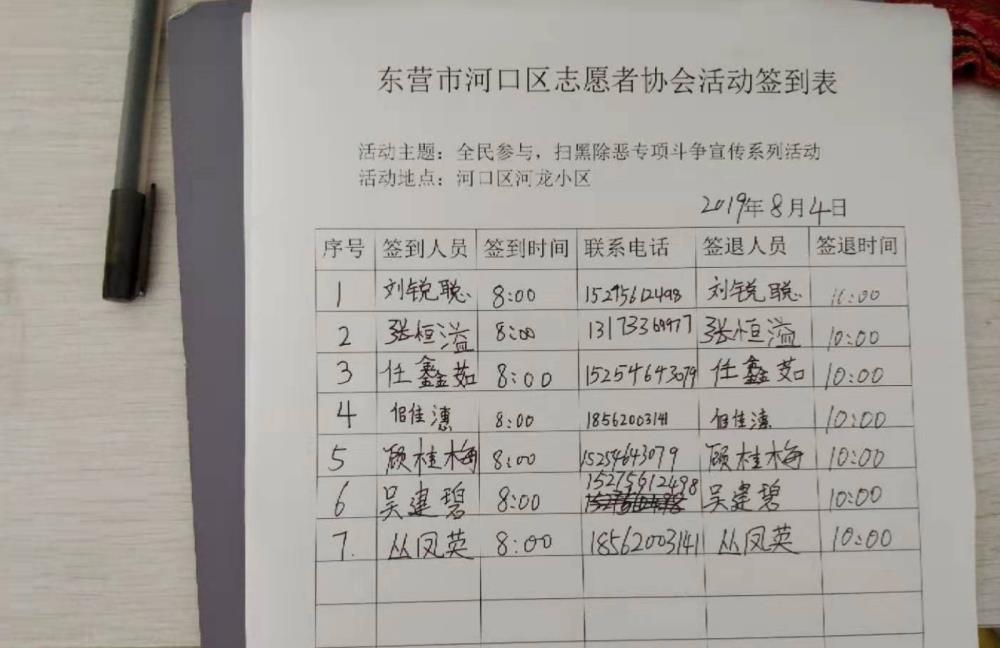 东营市河口区志愿者协会活动签到表
活动主题：全民参与，扫黑除恶专项斗争宣传系列活动
活动地点：河口区河龙小区
2019年8月4日
序号 签到人员 签到时间 联系电话 签退人员 签退时间
1 刘锐聪 8:00 15275612498 刘锐聪 10:00
2 张恒溢 8:00 13173369977 张恒溢 10:00
3 任鑫茹 8:00 15254643079 任鑫茹 10:00
4 8:00 18562003141 10:00
5 顾桂梅 8:00 15254643079 顾桂梅 10:00
6 吴建碧 8:00 15275612498 吴建碧 10:00
7. 丛凤英 8:00 18562003141 丛凤英 10:00